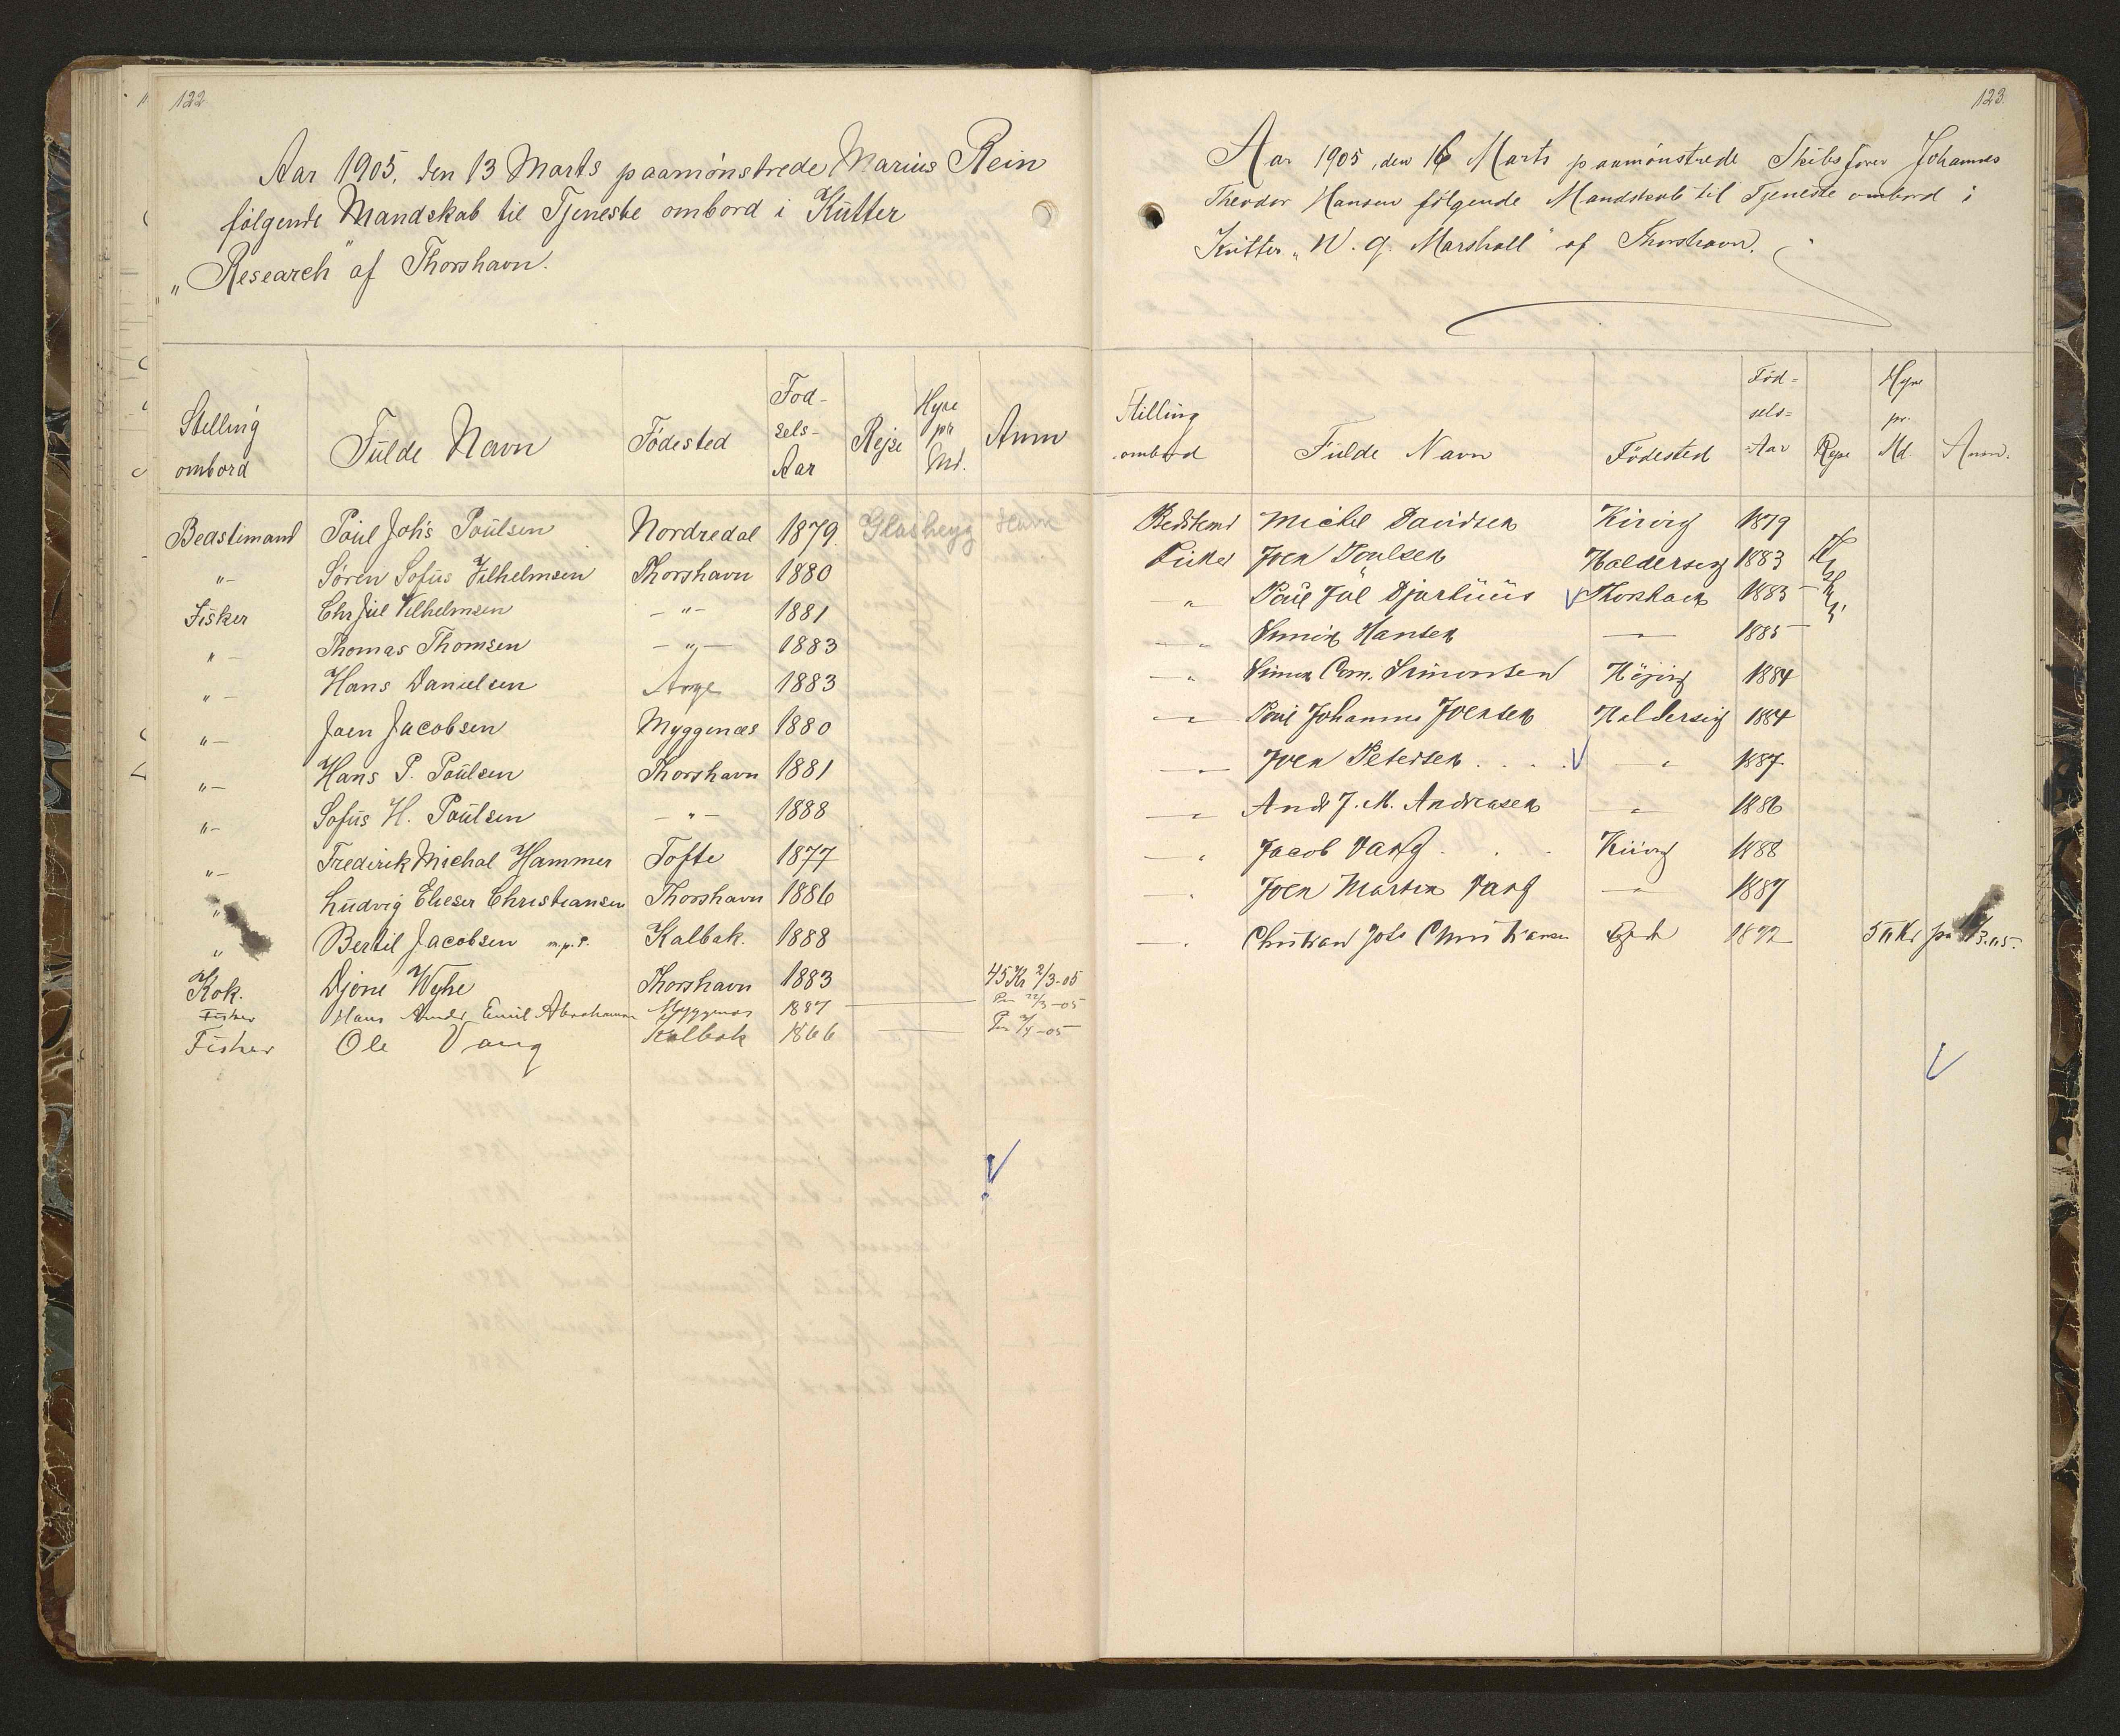 122
Aar 1905, den 13 Marts paamönstrede Marius Rein
følgende Mandskab til Tjeneste ombord i Kütter
„Research" af Thorshavn.
Stelling ombord Fülde Navn Födested Fod-sels-Aar Rejse Hyre pr Md. Anm
Bedstimand Poül Joh's Poülsen Nordredal 1879
"- Sören Sofüs Vilhelmsen Thorshavn 1880
Fisker Chr Jül Vilhelmsen -"- 1881
"- Thomas Thomsen -"- 1883
"- Hans Danielsen 1883
"- Joen Jacobsen Myggenæs 1880
"- Hans P. Poülsen Thorshavn 1881
"- Sofüs H. Poülsen -"- 1888
"- Frederik Michal Hammer Tofte 1877
" Lüdvig Elieser Christiansen Thorshavn 1886
" Bertil Jacobsen m.p.P. Kalbak. 1888
Kok. Djoni Wyhe Thorshavn 1883 45 Kr 2/3-05
Fisker Hans Andr. Emil Abrahamsen Myggenæs 1887 22/3-05
Fisker Ole Vang Kalbak 1866 /4-05
123.
Aar 1905, den 16 Marts paamönstrede Skibsfører Johannes
Theodor Hansen følgende Mandskab til Tjeneste ombord i
Kütter „W. G. Marshall" af Thorshavn.
Stilling ombord Fülde Navn Födested Föd=sels=Aar Rejse Hyre pr. Md. Anm.
Bedstemd Michel Davidsen Kirvig 1879
Fisker Joen Poulsen Haldersvig 1883
" Poül Jül Djurhüüs Thorshavn 1883
" Hansen 1885
" Simon Com. Simonsen 1884
" Poül Johannes Joensen Haldersvig 1884
" Joen Petersen " 1887
" Andr J. M. Andreasen " 1886
" Jacob Vang Kirvig 1888
" Joen Martin Vang " 1887
" Christian Johs Christiansen 1892 50 Kr pr